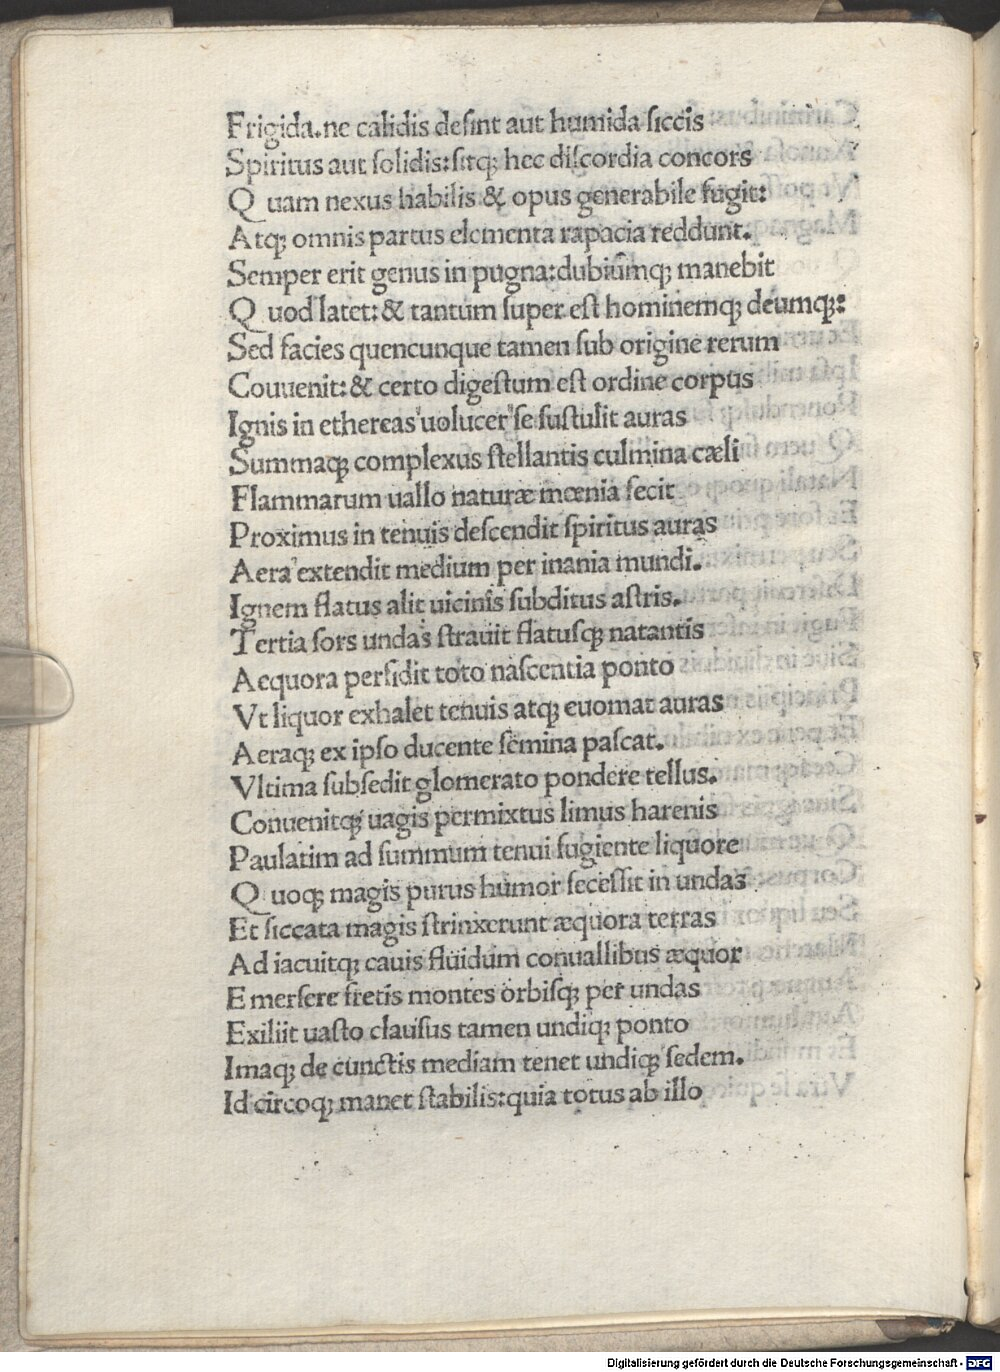 Frigida.ne calidis deſint aut humida ſiccis
Spiritus aut ſolidis:ſitq; hec diſcordia concors
Q uam nexus habilis & opus generabile fugit:
Atq; omnis partus elementa rapacia reddunt.
Semper erit genus in pugna:dubiumq; manebit
Q uod latet:& tantum ſuper eſt hominemq; deumq;:
Sed facies quencunque tamen ſub origine rerum
Couuenit:& certo digeſtum eſt ordine corpus
Ignis in ethereas uolucer ſe ſuſtulit auras
Summaq; complexus ſtellantis culmina cæli
Flammarum uallo naturæ mœnia fecit
Proximus in tenuis deſcendit ſpiritus auras
Aera extendit medium per inania mundi.
Ignem flatus alit uicinis ſubditus aſtris.
Tertia ſors undas ſtrauit flatuſq; natantis
Aequora perſidit toto naſcentia ponto
Vt liquor exhalet tenuis atq; euomat auras
Aeraq; ex ipſo ducente ſemina paſcat.
Vltima ſubſedit glomerato pondere tellus.
Conuenitq; uagis permixtus limus harenis
Paulatim ad ſummum tenui fugiente liquore
Q uoq; magis purus humor ſeceſſit in undas
Et ſiccata magis ſtrinxerunt æquora terras
Ad iacuitq; cauis fluidum conuallibus æquor
Emerſere fretis montes orbiſq; per undas
Exiliit uaſto clauſus tamen undiq; ponto
Imaq; de cunctis mediam tenet undiq; ſedem.
Id circoq; manet ſtabilis:quia totus ab illo
Digitalisierung gefördert durch die Deutsche Forschungsgemeinschaft - DFG